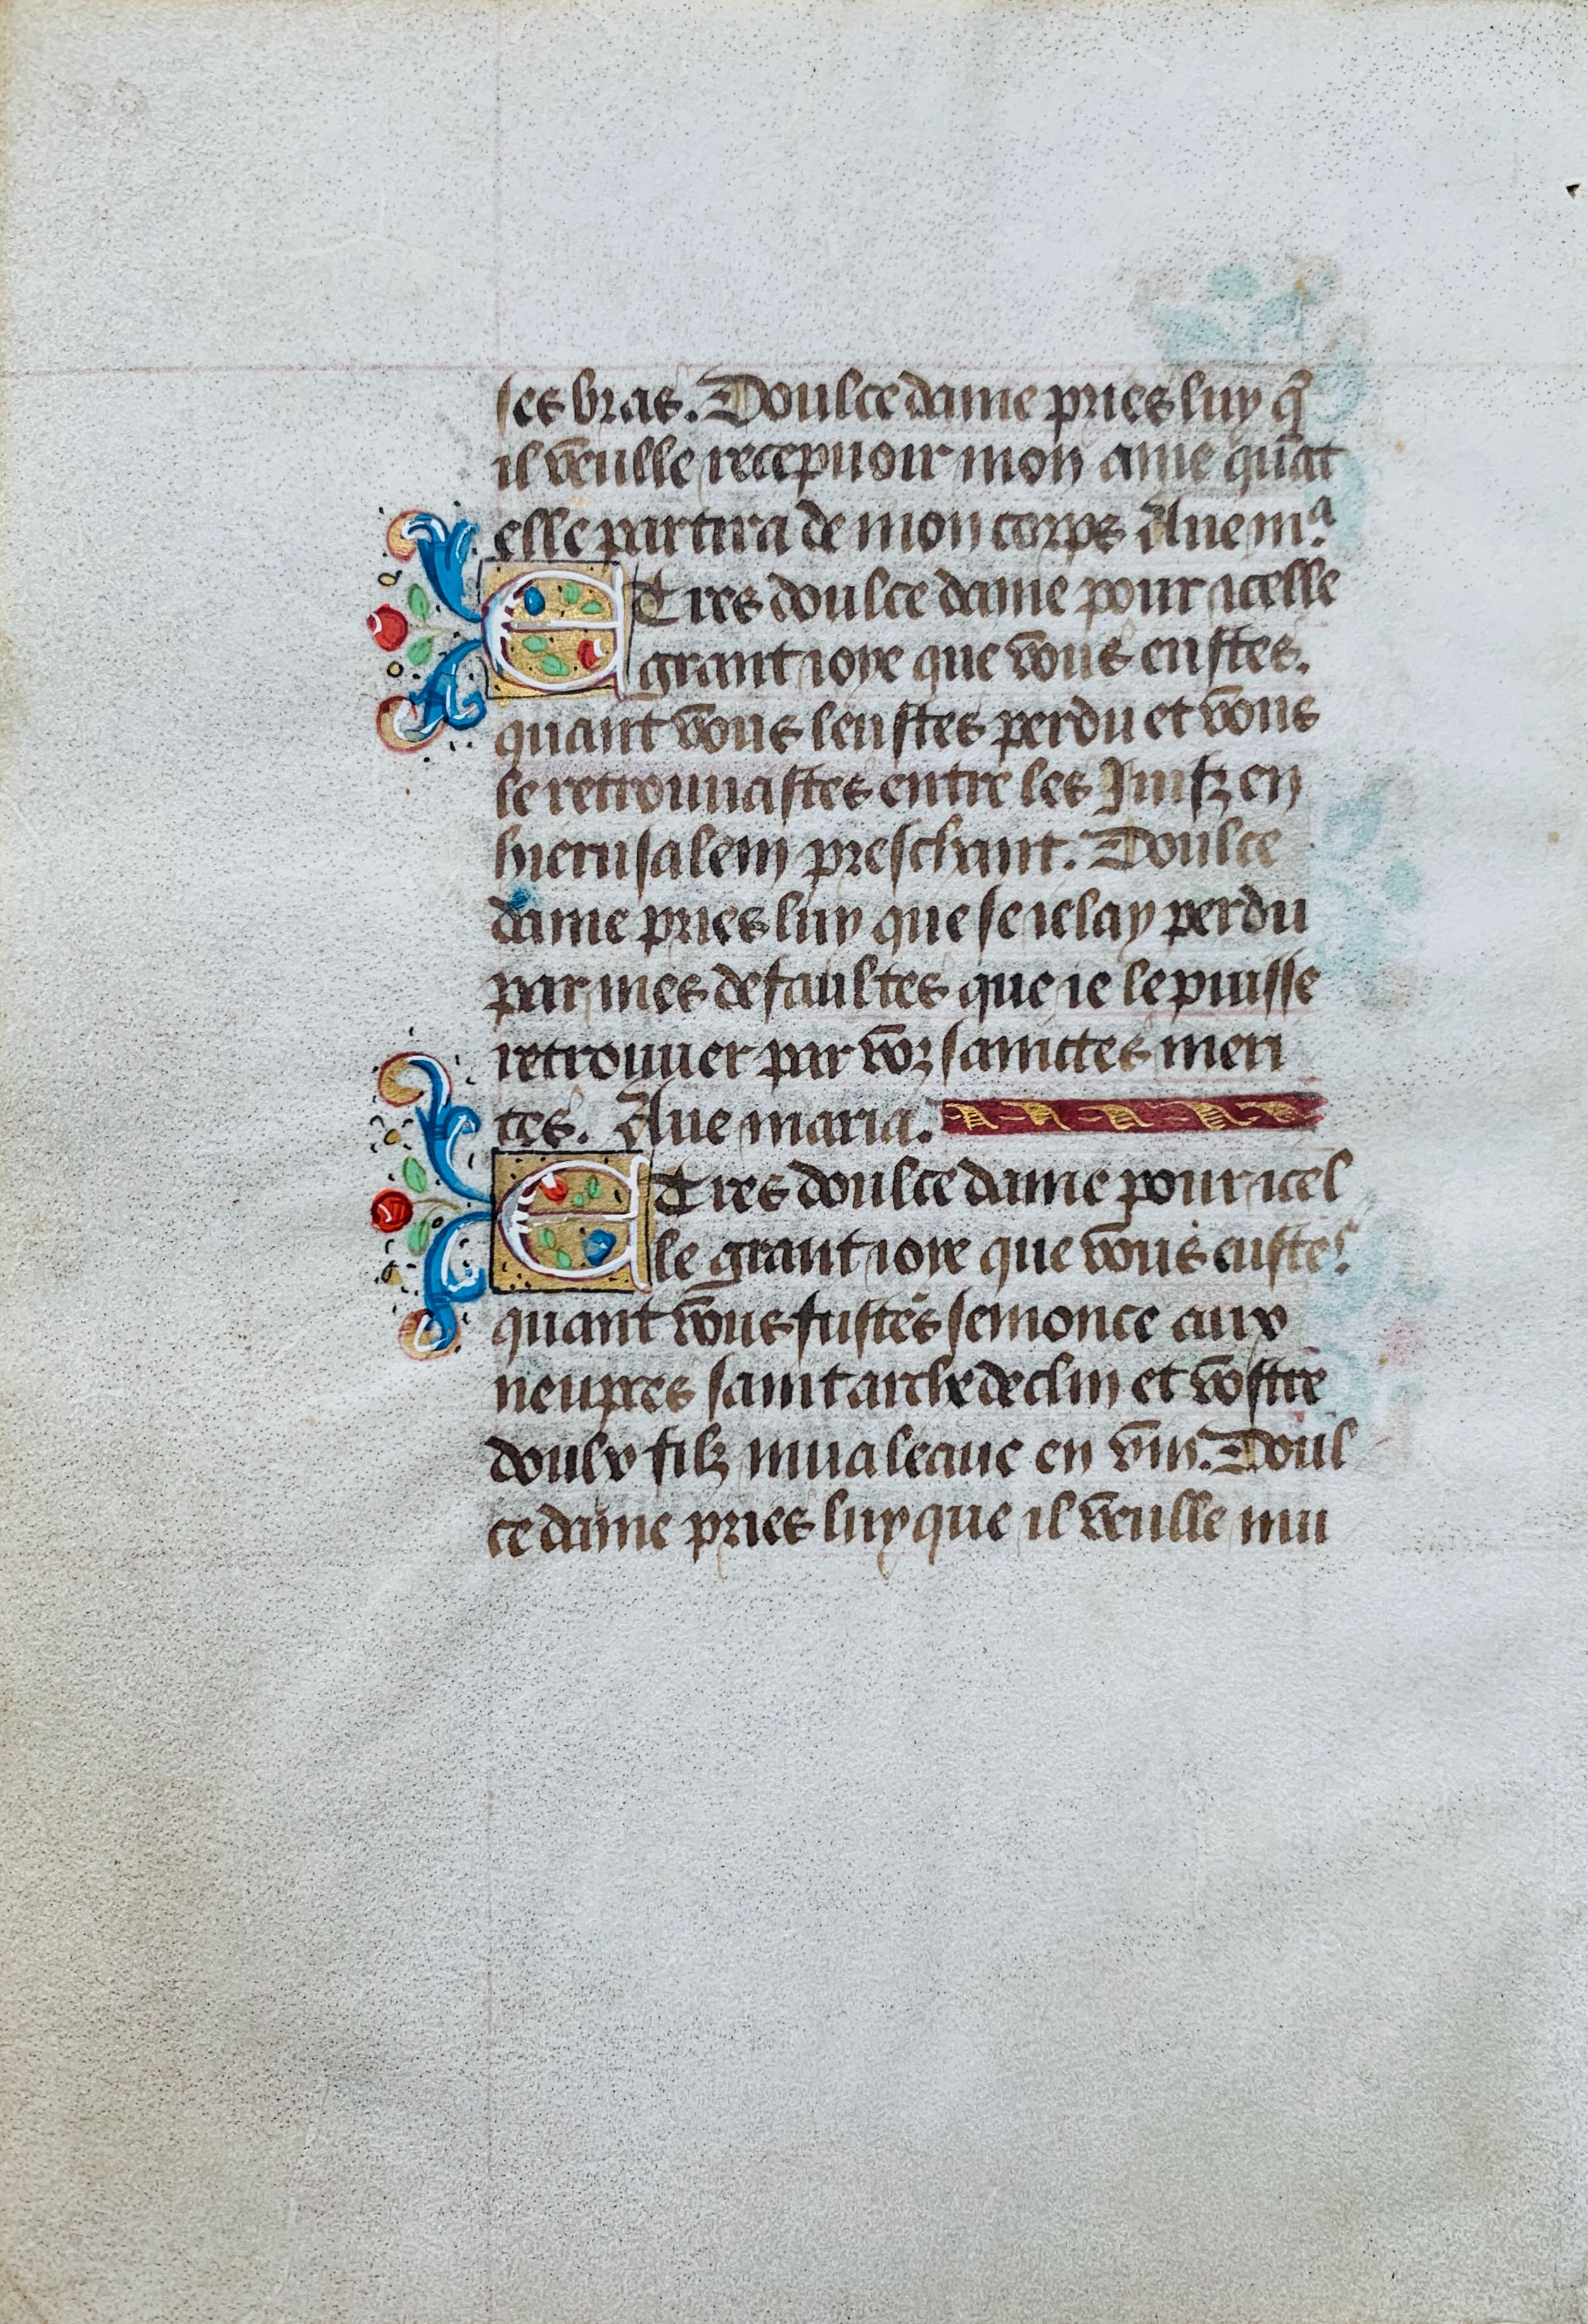 ses bras. Doulce dame pries luy q̄
il veulle recepuoir mon ame quāt
elle partira de mon corps Aue mᵃ.
E Tres doulce dame pour icelle
grant ioye que vous eustes.
quant vous leustes perdu et vous
le retrouuastes entre les Juifz en
hierusalem preschant. Doulce
dame pries luy que se ie lay perdu
par mes defaultes que ie le puisse
retrouuer par voz sainctes meri
tes. Aue maria.
E Tres doulce dame pour icel
le grant ioye que vous eustes
quant vous fustes semonce aux
neupces saint archedeclin et vostre
doulx filz mua leaue en vin. Doul
ce dame pries luy que il veulle mu